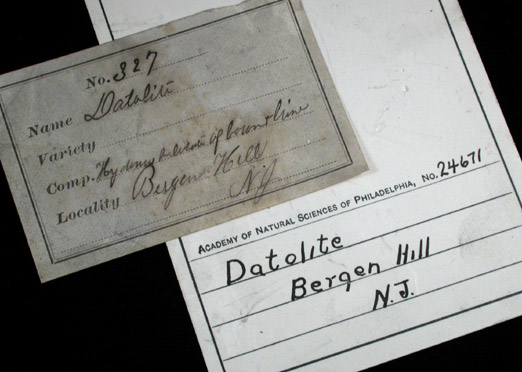 No. 327
Name Datolite
Variety
Comp. Hydrous silicate of boron & lime
Locality Bergen Hill
N.J.
ACADEMY OF NATURAL SCIENCES OF PHILADELPHIA, NO. 24671
Datolite
Bergen Hill
N.J.